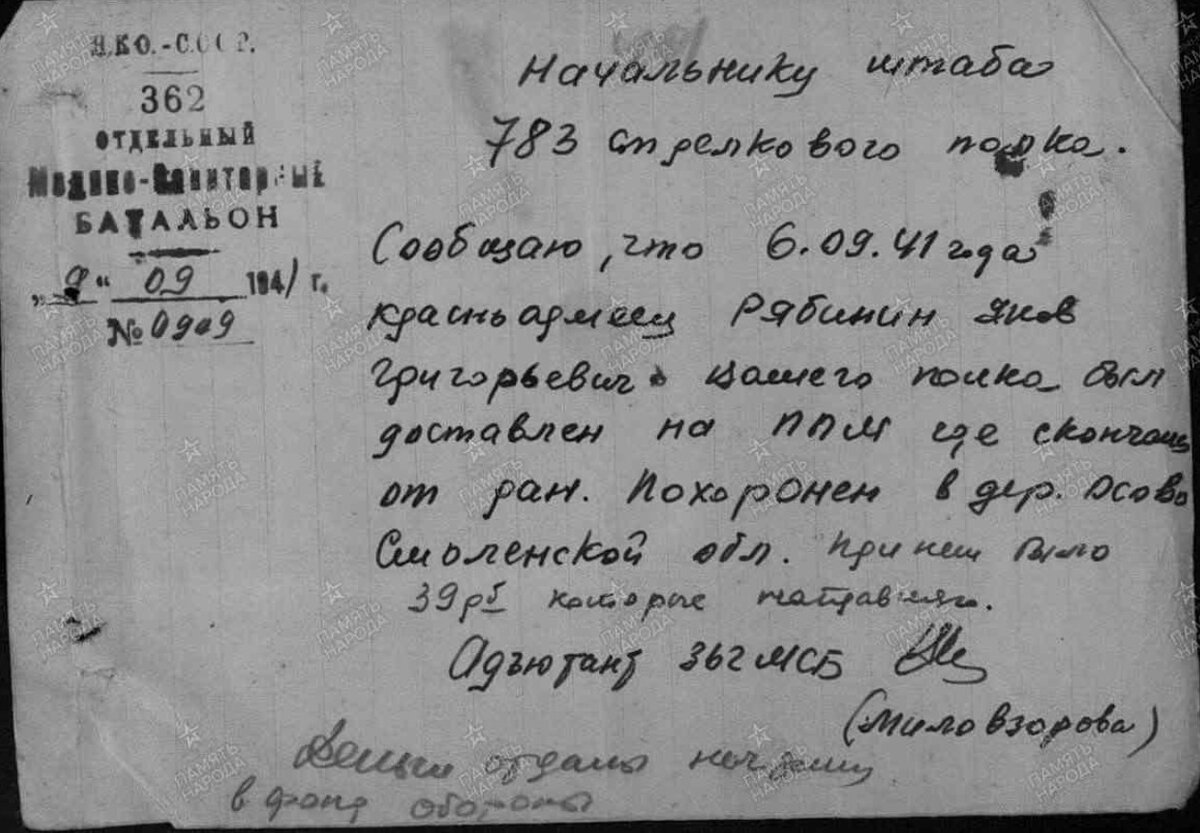 Н.К.О.-СССР.
362
ОТДЕЛЬНЫЙ
Медико-Санитарный
БАТАЛЬОН
„9“ 09 1941 г.
№ 0909
Начальнику штаба
783 стрелкового полка.
Сообщаю, что 6.09.41 года
красноармеец Рябинин Яков
Григорьевич вашего полка был
доставлен на ППМ где скончался
от ран. Похоронен в дер. Осово
Смоленской обл. При нем было
39 рб которые направляю.
Адъютант 362 МСБ
(Миловзорова)
Деньги отданы нач фин
в фонд обороны
ПАМЯТЬ НАРОДА